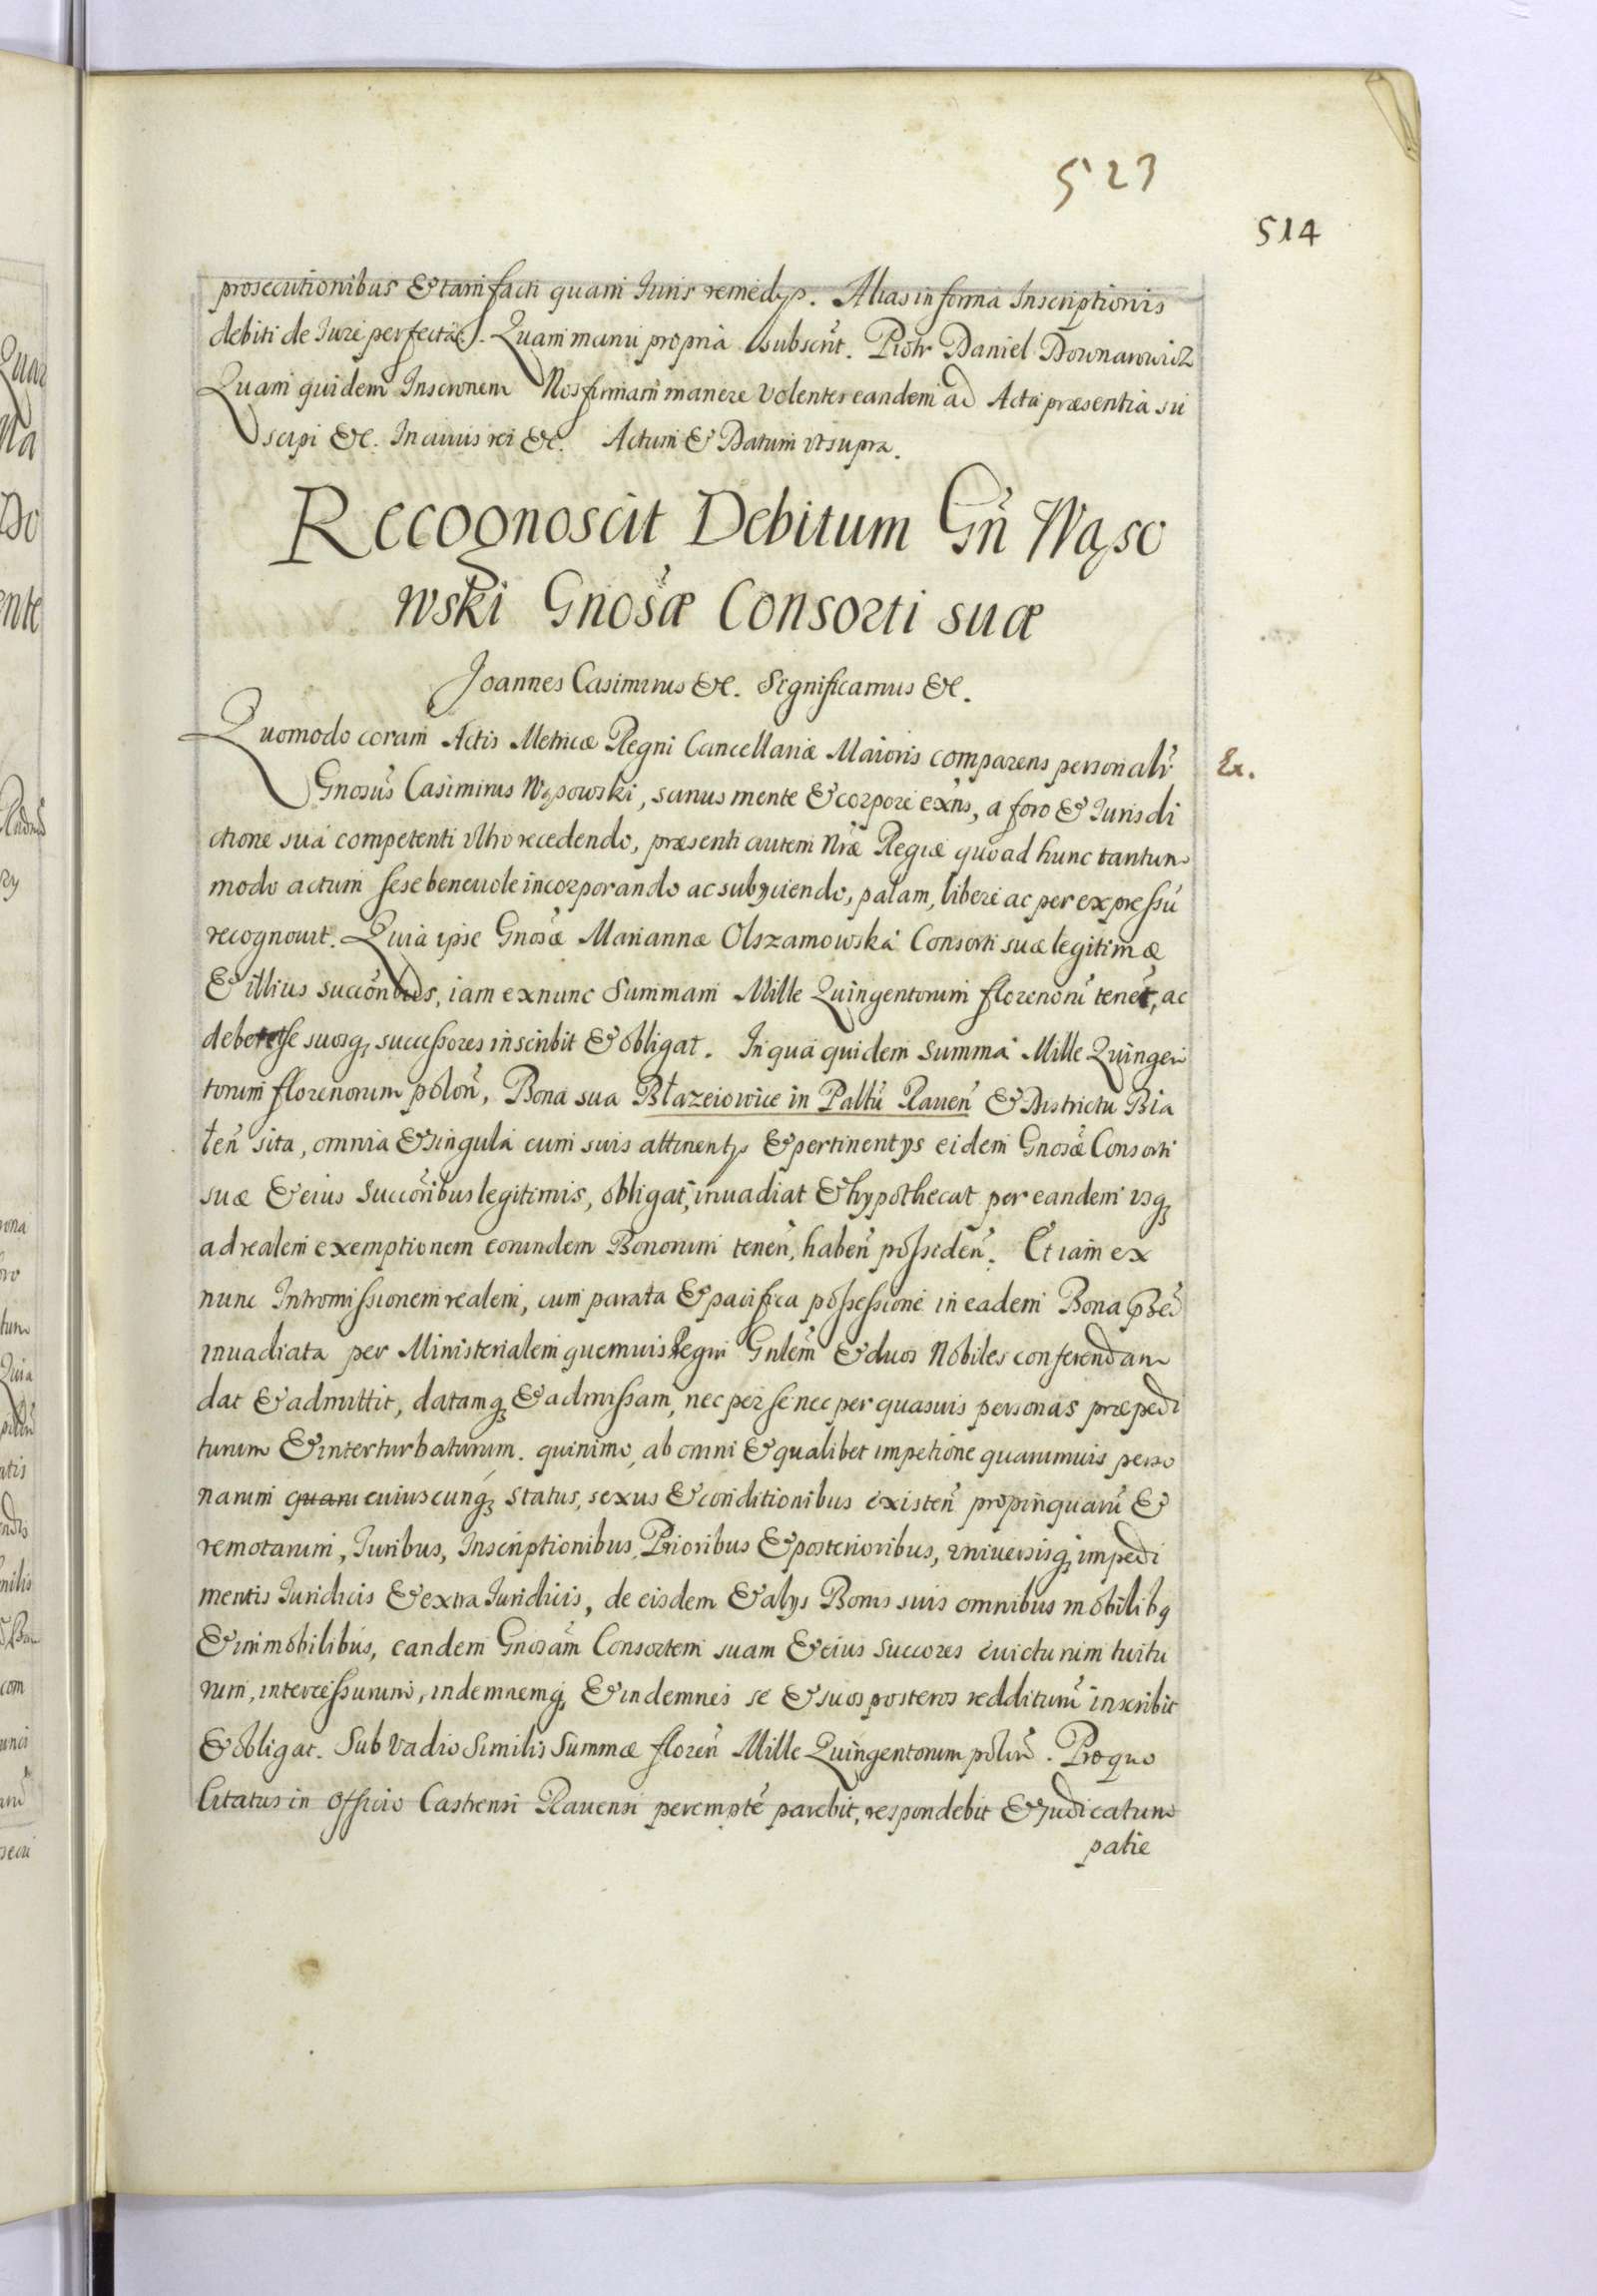 523
514
prosecutionibus & tam facti quam Iuris remedys. Alias in forma Inscriptionis
debiti de Iure perfectae. Quam manu propria subscrit. Piotr Daniel Downarowicz
Quam quidem Inscronem Nos firmam manere volentes eandem ad Acta præsentia su
scipi &c. In cuius rei &c. Actum & Datum vt supra.
Recognoscit Debitum Gn̄ Wąso
wski Gnosæ Consorti suæ
Joannes Casimirus &c. Significamus &c.
Quomodo coram Actis Metricæ Regni Cancellariæ Maioris comparens personalr
Ex.
Gnosus Casimirus Wąsowski, sanus mente & corpore exn̄s, a foro & Iurisdi
ctione sua competenti vltro recedendo, præsenti autem Nr̄æ Regiæ quo ad hunc tantum
modo actum sese beneuole incorporando ac subyciendo, palam, libere ac per expressū
recognouit. Quia ipse Gnosæ Mariannæ Olszamowska Consorti suæ legitimæ
& illius succōribus, iam exnunc Summam Mille Quingentorum florenorū tenet, ac
debet se suosq successores inscribit & obligat. In qua quidem summa Mille Quingen
torum florenorum polon̄, Bona sua Błazeiowice in Pallū Rauen̄ & Districtu Bia
łen̄ sita, omnia & singula cum suis attinentys & pertinentys eidem Gnosæ Consorti
suæ & eius Succōribus legitimis, obligat, inuadiat & hypothecat per eandem vsq
ad realem exemptionem eorundem Bonorum tenen̄, haben̄ possiden̄. Et iam ex
nunc Intromissionem realem, cum parata & pacifica possessione in eadem Bona
inuadiata per Ministerialem quemuis Regni Gnlem & duos Nobiles conferendam
dat & admittit, datamq & admissam, nec per se nec per quasuis personas præpedi
turum & interturbaturum. quinimo, ab omni & qualibet impetione quarumuis perso
narum quaru cuiuscunq status, sexus & conditionibus existen̄ propinquarū &
remotarum, Iuribus, Inscriptionibus, Prioribus & posterioribus, vniuersisq impedi
mentis Iuridicis & extra Iuridicis, de eisdem & alys Bonis suis omnibus mobilibq
& immobilibus, eandem Gnosam Consortem suam & eius succores euicturum tuitu
rum, intercessurum, indemnemq & indemnes se & suos posteros redditurū inscribit
& obligat. Sub vadio similis Summæ floren̄ Mille Quingentorum polon̄. Pro quo
Citatus in Officio Castrensi Rauensi perempte parebit, respondebit & judicatum
patie